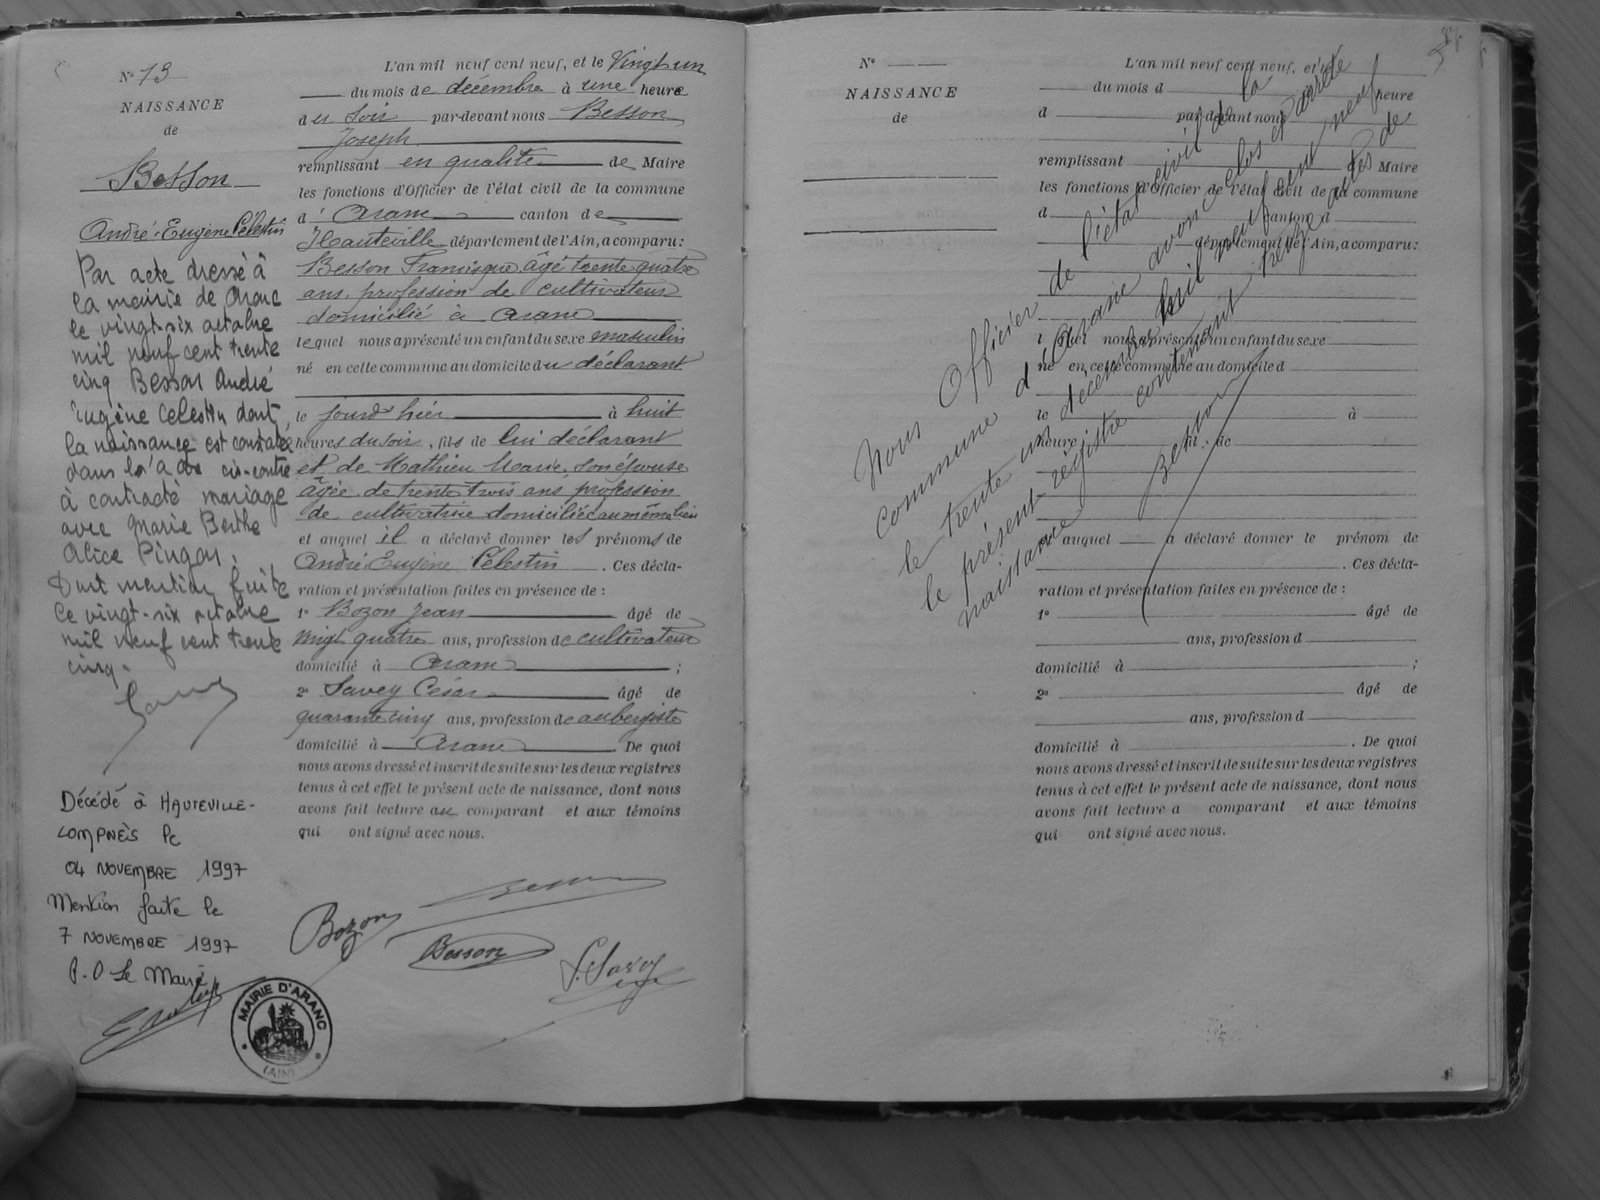 N° 13
NAISSANCE
de
Besson
André Eugène Célestin
Par acte dressé à
la mairie de Aranc
le vingt-six octobre
mil neuf cent trente
cinq Besson André
Eugène Célestin dont
la naissance est constatée
dans l'acte ci-contre
à contracté mariage
avec Marie Berthe
Alice Pingon.
Dont mention faite
le vingt-six octobre
mil neuf cent trente
cinq.
Décédé à HAUTEVILLE-
LOMPNÈS le
04 NOVEMBRE 1997
Mention faite le
7 NOVEMBRE 1997
P.O Le Maire
MAIRIE D'ARANC
(AIN)
L'an mil neuf cent neuf, et le Vingt un
du mois de décembre à une heure
du soir par-devant nous Besson
Joseph
remplissant en qualité de Maire
les fonctions d'Officier de l'état civil de la commune
d' Aranc canton de
Hauteville département de l'Ain, a comparu :
Besson Francisque, âgé trente quatre
ans, profession de cultivateur
domicilié à Aranc
lequel nous a présenté un enfant du sexe masculin
né en cette commune au domicile du déclarant
le jourd'hier à huit
heures du soir, fils de lui déclarant
et de Mathieu Marie, son épouse
âgée de trente trois ans profession
de cultivatrice domiciliée au même lieu
et auquel il a déclaré donner les prénoms de
André Eugène Célestin. Ces décla-
ration et présentation faites en présence de :
1° Bozon Jean âgé de
vingt quatre ans, profession de cultivateur
domicilié à Aranc ;
2° Savey César âgé de
quarante cinq ans, profession de aubergiste
domicilié à Aranc. De quoi
nous avons dressé et inscrit de suite sur les deux registres
tenus à cet effet le présent acte de naissance, dont nous
avons fait lecture au comparant et aux témoins
qui ont signé avec nous.
Bozon
Besson
Besson
Savey
N°
NAISSANCE
de
L'an mil neuf cent neuf, et le
du mois d heure
d par-devant nous
remplissant Maire
les fonctions d'Officier de l'état civil de la commune
d canton d
département de l'Ain, a comparu :
lequel nous a présenté un enfant du sexe
né en cette commune au domicile d
le à
heure fil de
et auquel a déclaré donner le prénom de
. Ces décla-
ration et présentation faites en présence de :
1° âgé de
ans, profession d
domicilié à ;
2° âgé de
ans, profession d
domicilié à . De quoi
nous avons dressé et inscrit de suite sur les deux registres
tenus à cet effet le présent acte de naissance, dont nous
avons fait lecture a comparant et aux témoins
qui ont signé avec nous.
Nous Officier de l'état civil de la
commune d'Aranc avons clos et arrêté
le trente un décembre mil neuf cent neuf
le présent registre contenant treize actes de
naissance
Besson